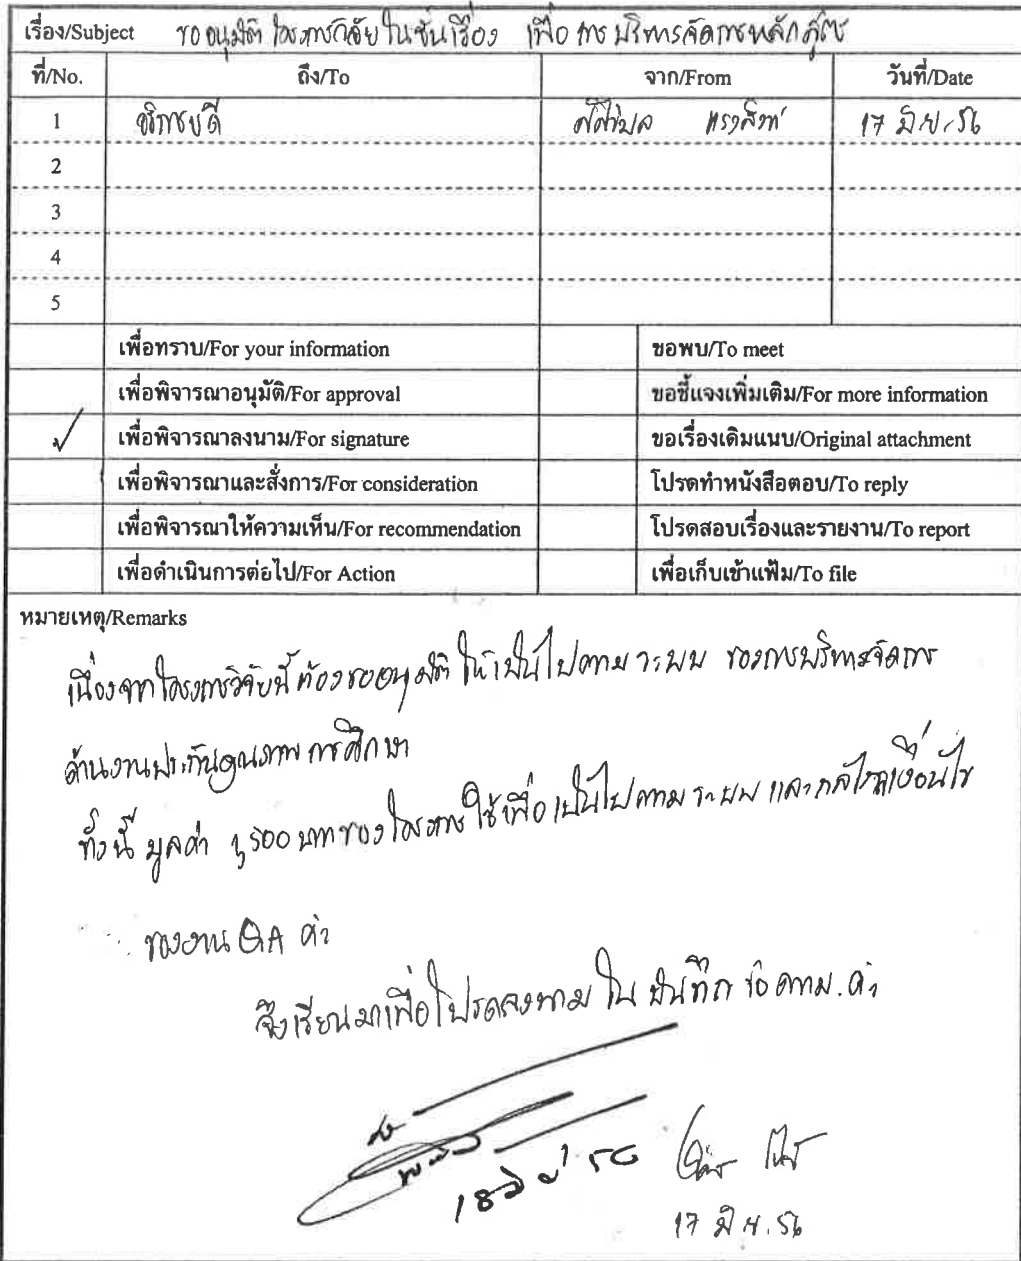 เรื่อง/Subject ขออนุมัติ โครงการวิจัยในชั้นเรียน เพื่อการบริหารจัดการหลักสูตร
ที่/No. ถึง/To จาก/From วันที่/Date
1 อธิการบดี 17 มิ.ย. 56
2
3
4
5
เพื่อทราบ/For your information ขอพบ/To meet
เพื่อพิจารณาอนุมัติ/For approval ขอชี้แจงเพิ่มเติม/For more information
✓ เพื่อพิจารณาลงนาม/For signature ขอเรื่องเดิมแนบ/Original attachment
เพื่อพิจารณาและสั่งการ/For consideration โปรดทำหนังสือตอบ/To reply
เพื่อพิจารณาให้ความเห็น/For recommendation โปรดสอบเรื่องและรายงาน/To report
เพื่อดำเนินการต่อไป/For Action เพื่อเก็บเข้าแฟ้ม/To file
หมายเหตุ/Remarks
เนื่องจากโครงการวิจัยนี้ต้องขออนุมัติ ให้เป็นไปตามระบบ ของการบริหารจัดการ
ด้านงานประกันคุณภาพการศึกษา
ทั้งนี้ มูลค่า 1,500 บาทของโครงการ ใช้เพื่อเป็นไปตามระบบ และกลไกเงื่อนไข
ของงาน QA ค่ะ
จึงเรียนมาเพื่อโปรดลงนาม ใน บันทึกข้อความ.ค่ะ
18 มิ.ย. 56
17 มิ.ย. 56